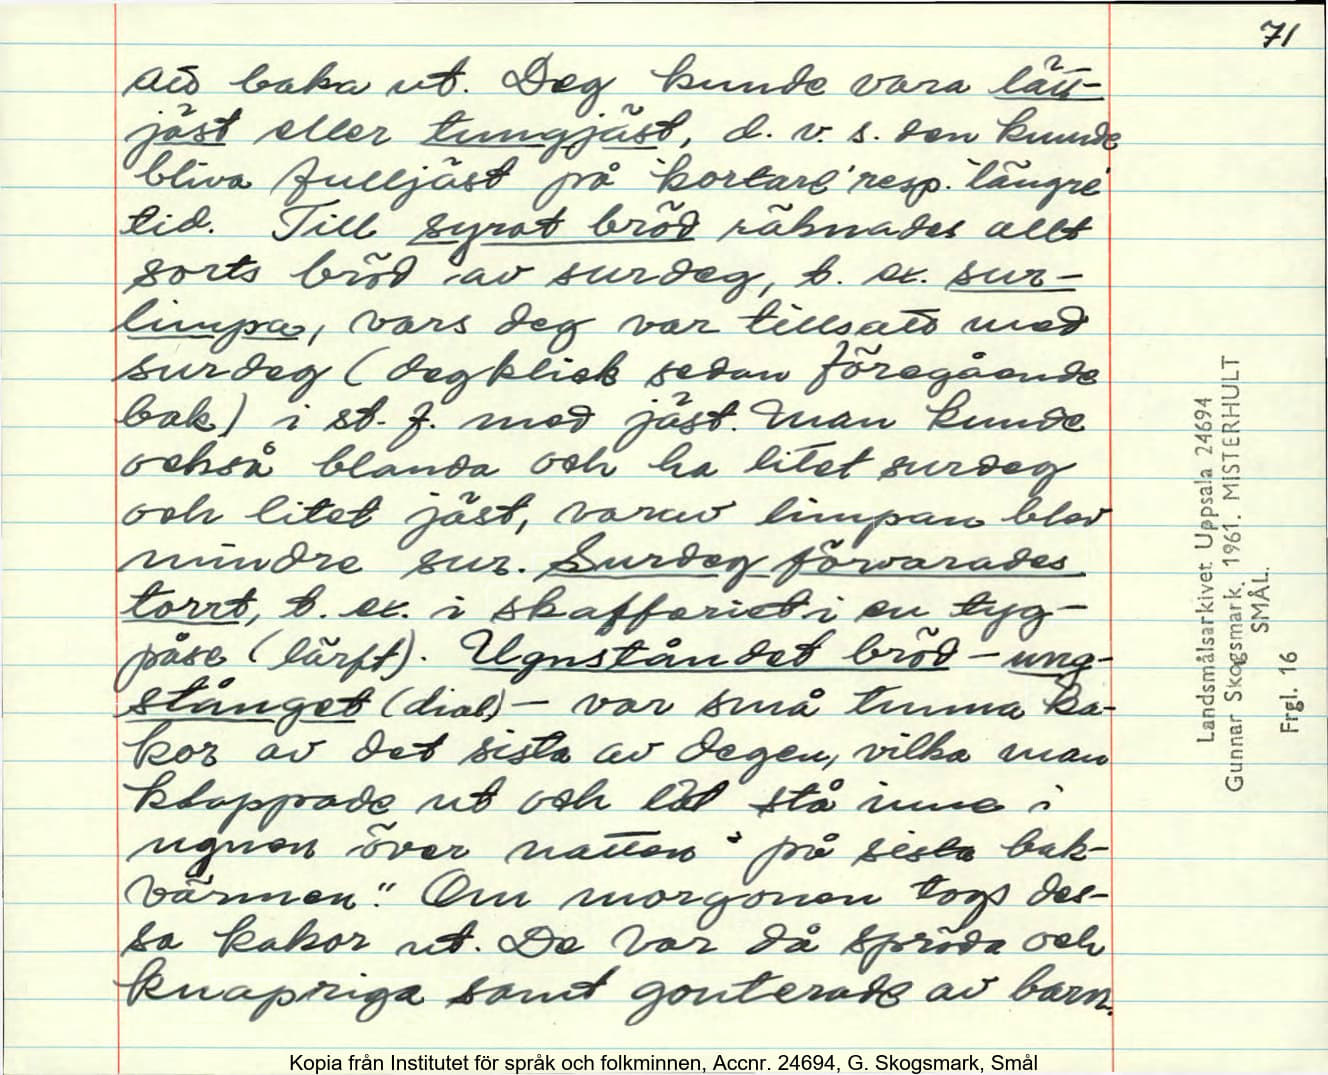 71
att baka ut. Deg kunde vara lätt-
jäst eller tungjäst, d. v. s. den kunde
bliva fulljäst på "kortare" resp. "längre"
tid. Till syrat bröd räknades allt
sorts bröd av surdeg, t. ex. sur-
limpa, vars deg var tillsatt med
surdeg (degklick sedan föregående
bak) i st. f. med jäst. Man kunde
också blanda och ha litet surdeg
och litet jäst, varav limpan blev
mindre sur. Surdeg förvarades
torrt, t. ex. i skafferiet i en tyg-
påse (lärft). Ugnståndet bröd – ung-
stånget (dial.) – var små tunna ka-
kor av det sista av degen, vilka man
klappade ut och lät stå inne i
ugnen över natten "på sista bak-
värmen." Om morgonen togs des-
sa kakor ut. De var då spröda och
knapriga samt gouterade av barn.
Landsmålsarkivet Uppsala 24694
Gunnar Skogsmark. 1961. MISTERHULT
SMÅL.
Frgl. 16
Kopia från Institutet för språk och folkminnen, Accnr. 24694, G. Skogsmark, Smål